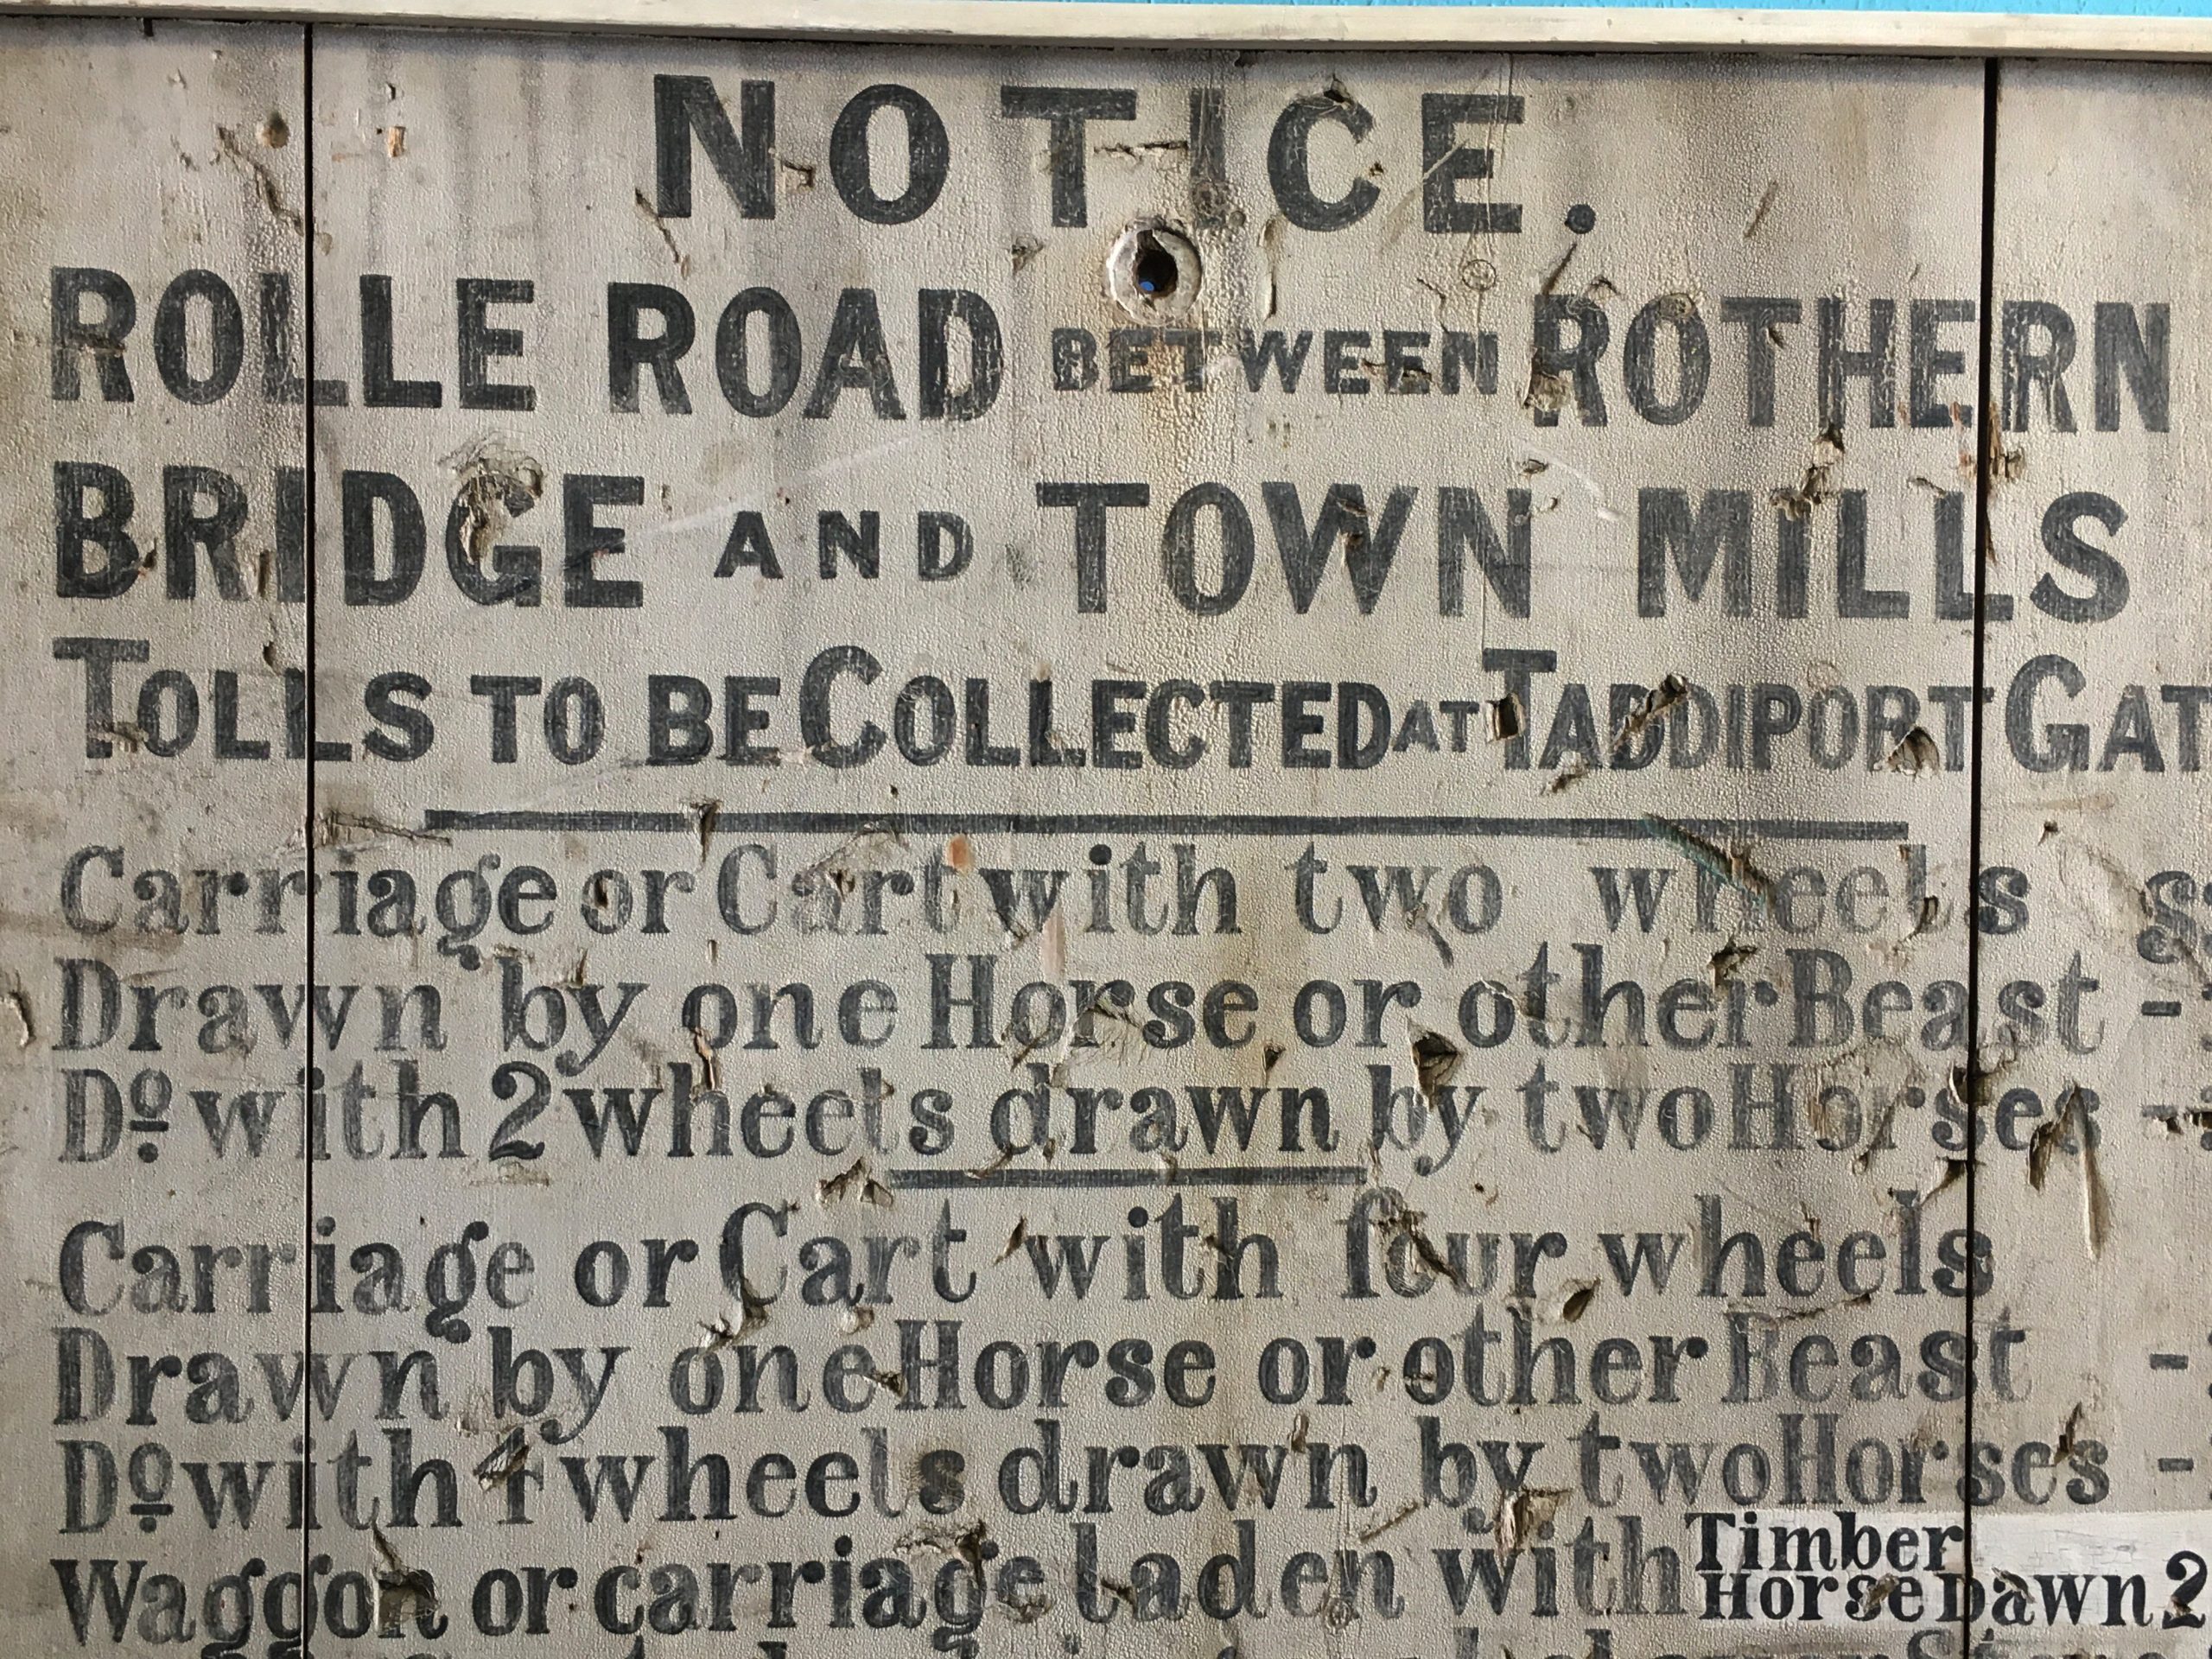 NOTICE.
ROLLE ROAD BETWEEN ROTHERN
BRIDGE AND TOWN MILLS
TOLLS TO BE COLLECTED AT TADDIPORT GAT
Carriage or Cart with two wheels
Drawn by one Horse or other Beast -
Dº with 2 wheels drawn by two Horses -
Carriage or Cart with four wheels
Drawn by one Horse or other Beast -
Dº with 4 wheels drawn by two Horses -
Waggon or carriage laden with Timber
Horse Dawn 2